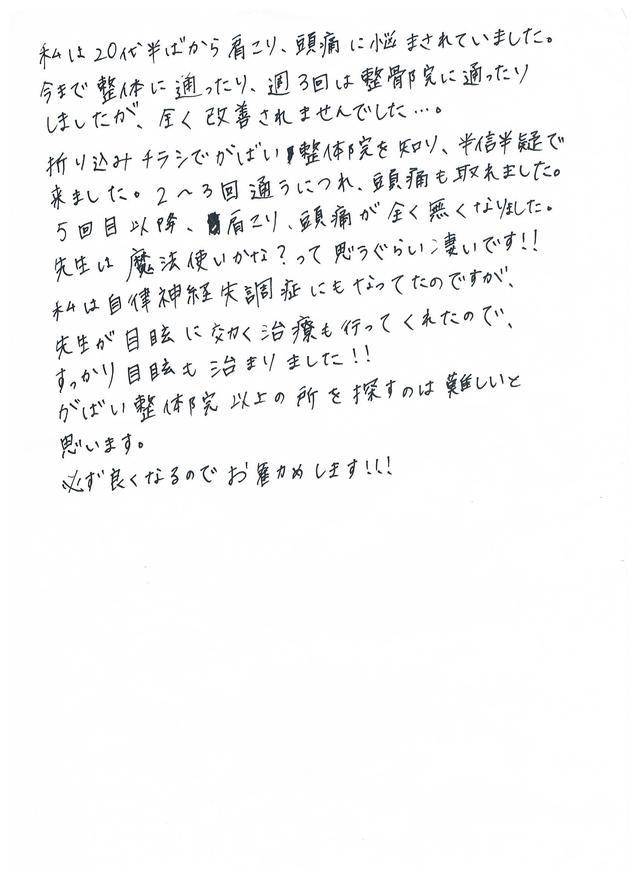 私は20代半ばから肩こり、頭痛に悩まされていました。
今まで整体に通ったり、週3回は整骨院に通ったり
しましたが、全く改善されませんでした…。
折り込みチラシでがばい整体院を知り、半信半疑で
来ました。2〜3回通うにつれ、頭痛も取れました。
5回目以降、肩こり、頭痛が全く無くなりました。
先生は魔法使いかな?って思うぐらい凄いです!!
私は自律神経失調症にもなってたのですが、
先生が目眩に効く治療も行ってくれたので、
すっかり目眩も治まりました!!
がばい整体院以上の所を探すのは難しいと
思います。
必ず良くなるのでお薦めします!!!